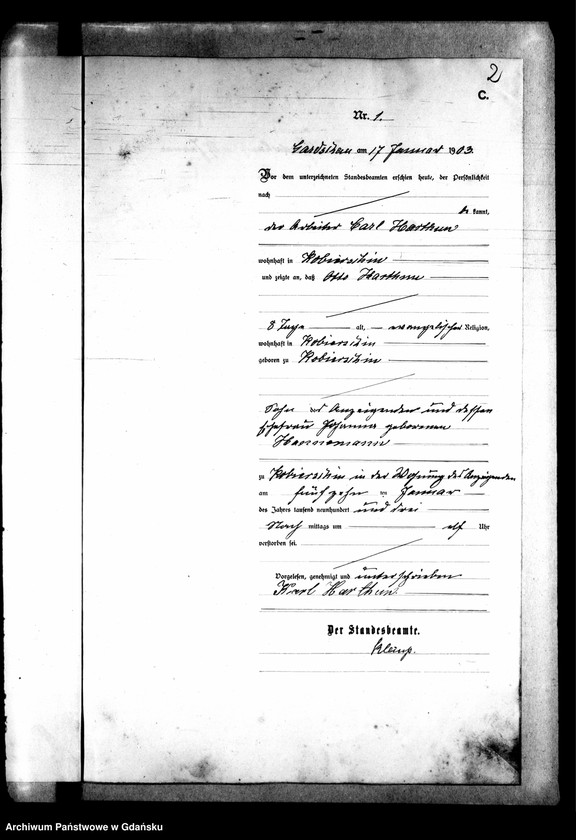 2
C.
Nr. 1.
am 17 Januar 1903.
Vor dem unterzeichneten Standesbeamten erschien heute, der Persönlichkeit
nach
be kannt,
der Arbeiter Carl Harthun
wohnhaft in Kobierschin
und zeigte an, daß Otto Harthun
8 Tage alt, evangelischer Religion,
wohnhaft in Kobierschin
geboren zu Kobierschin
Sohn des Anzeigenden und dessen
Ehefrau Johanna geborenen
Hannemann
zu Kobierschin in der Wohnung des Anzeigenden
am fünfzehn ten Januar
des Jahres tausend neunhundert und drei
Nach mittags um elf Uhr
verstorben sei.
Vorgelesen, genehmigt und unterschrieben
Karl Harthun.
Der Standesbeamte.
Archiwum Państwowe w Gdańsku